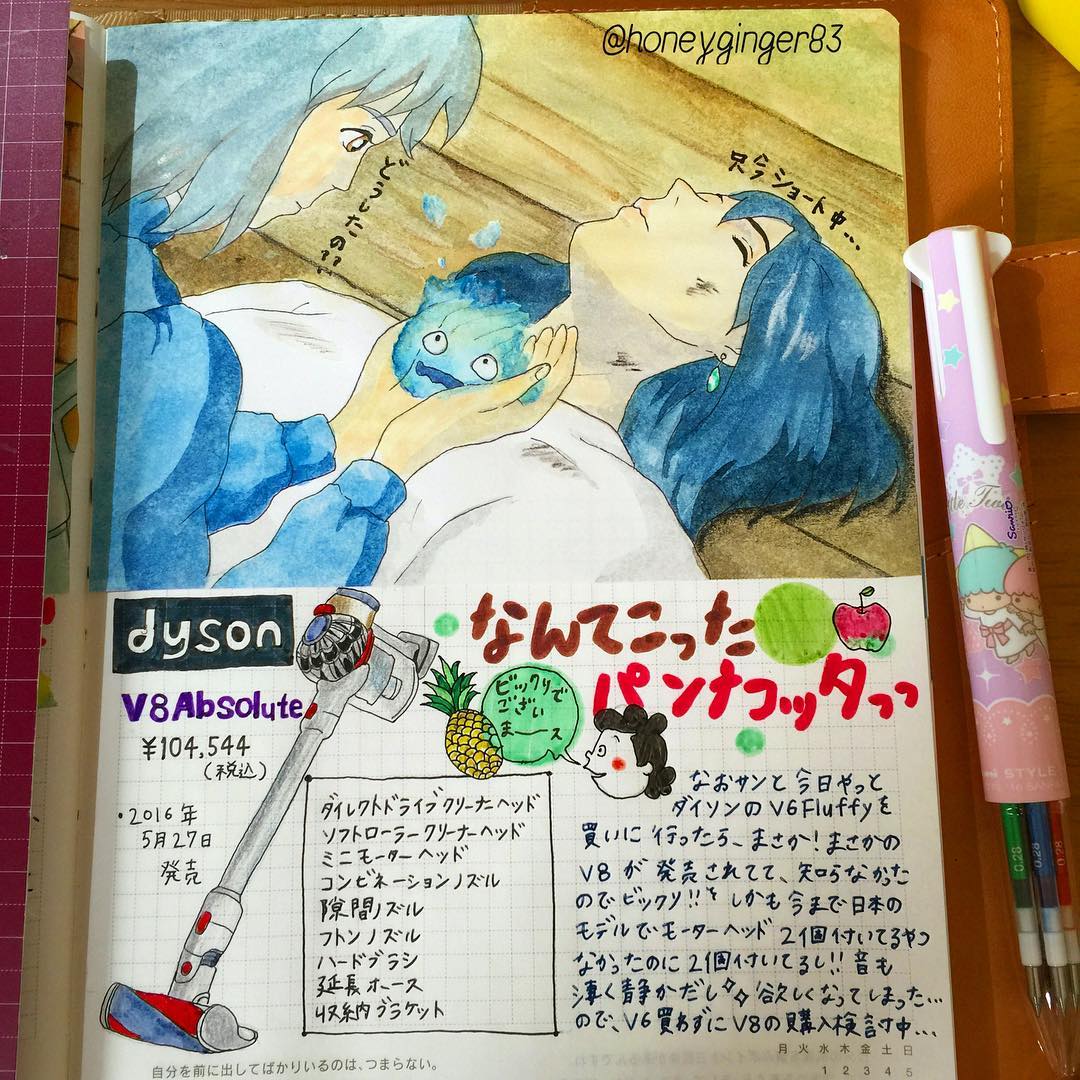 @honeyginger83
どうしたの??
只今ショート中…
dyson
V8Absolute
¥104,544
(税込)
・2016年
5月27日
発売
なんてこった
パンナコッタっっ
ビックリで
ござい
まーース
ダイレクトドライブクリーナーヘッド
ソフトローラークリーナーヘッド
ミニモーターヘッド
コンビネーションノズル
隙間ノズル
フトンノズル
ハードブラシ
延長ホース
収納ブラケット
なおサンと今日やっと
ダイソンのV6Fluffyを
買いに行ったら、まさか!まさかの
V8が発売されてて、知らなかった
のでビックリ!!しかも今まで日本の
モデルでモーターヘッド2個付いてるやつ
なかったのに2個付いてるし!!音も
凄く静かだし 欲しくなってしまった…
ので、V6買わずにV8の購入検討中…
自分を前に出してばかりいるのは、つまらない。
月火水木金土日
1 2 3 4 5
Little Twin
Sanrio
uni STYLE
0.28
0.28
0.28